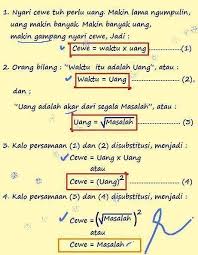 1. Nyari cewe tuh perlu uang. Makin lama ngumpulin,
uang makin banyak. Makin banyak uang,
makin gampang nyari cewe, Jadi :
Cewe = waktu x uang (1)
2. Orang bilang : "Waktu itu adalah Uang", atau :
Waktu = Uang (2),
dan ;
"Uang adalah akar dari segala Masalah", atau :
Uang = √Masalah (3)
3. Kalo persamaan (1) dan (2) disubstitusi, menjadi :
Cewe = Uang x Uang
atau
Cewe = (Uang)² (4)
4. Kalo persamaan (3) dan (4) disubstitusi, menjadi :
Cewe = (√Masalah)²
atau
Cewe = Masalah